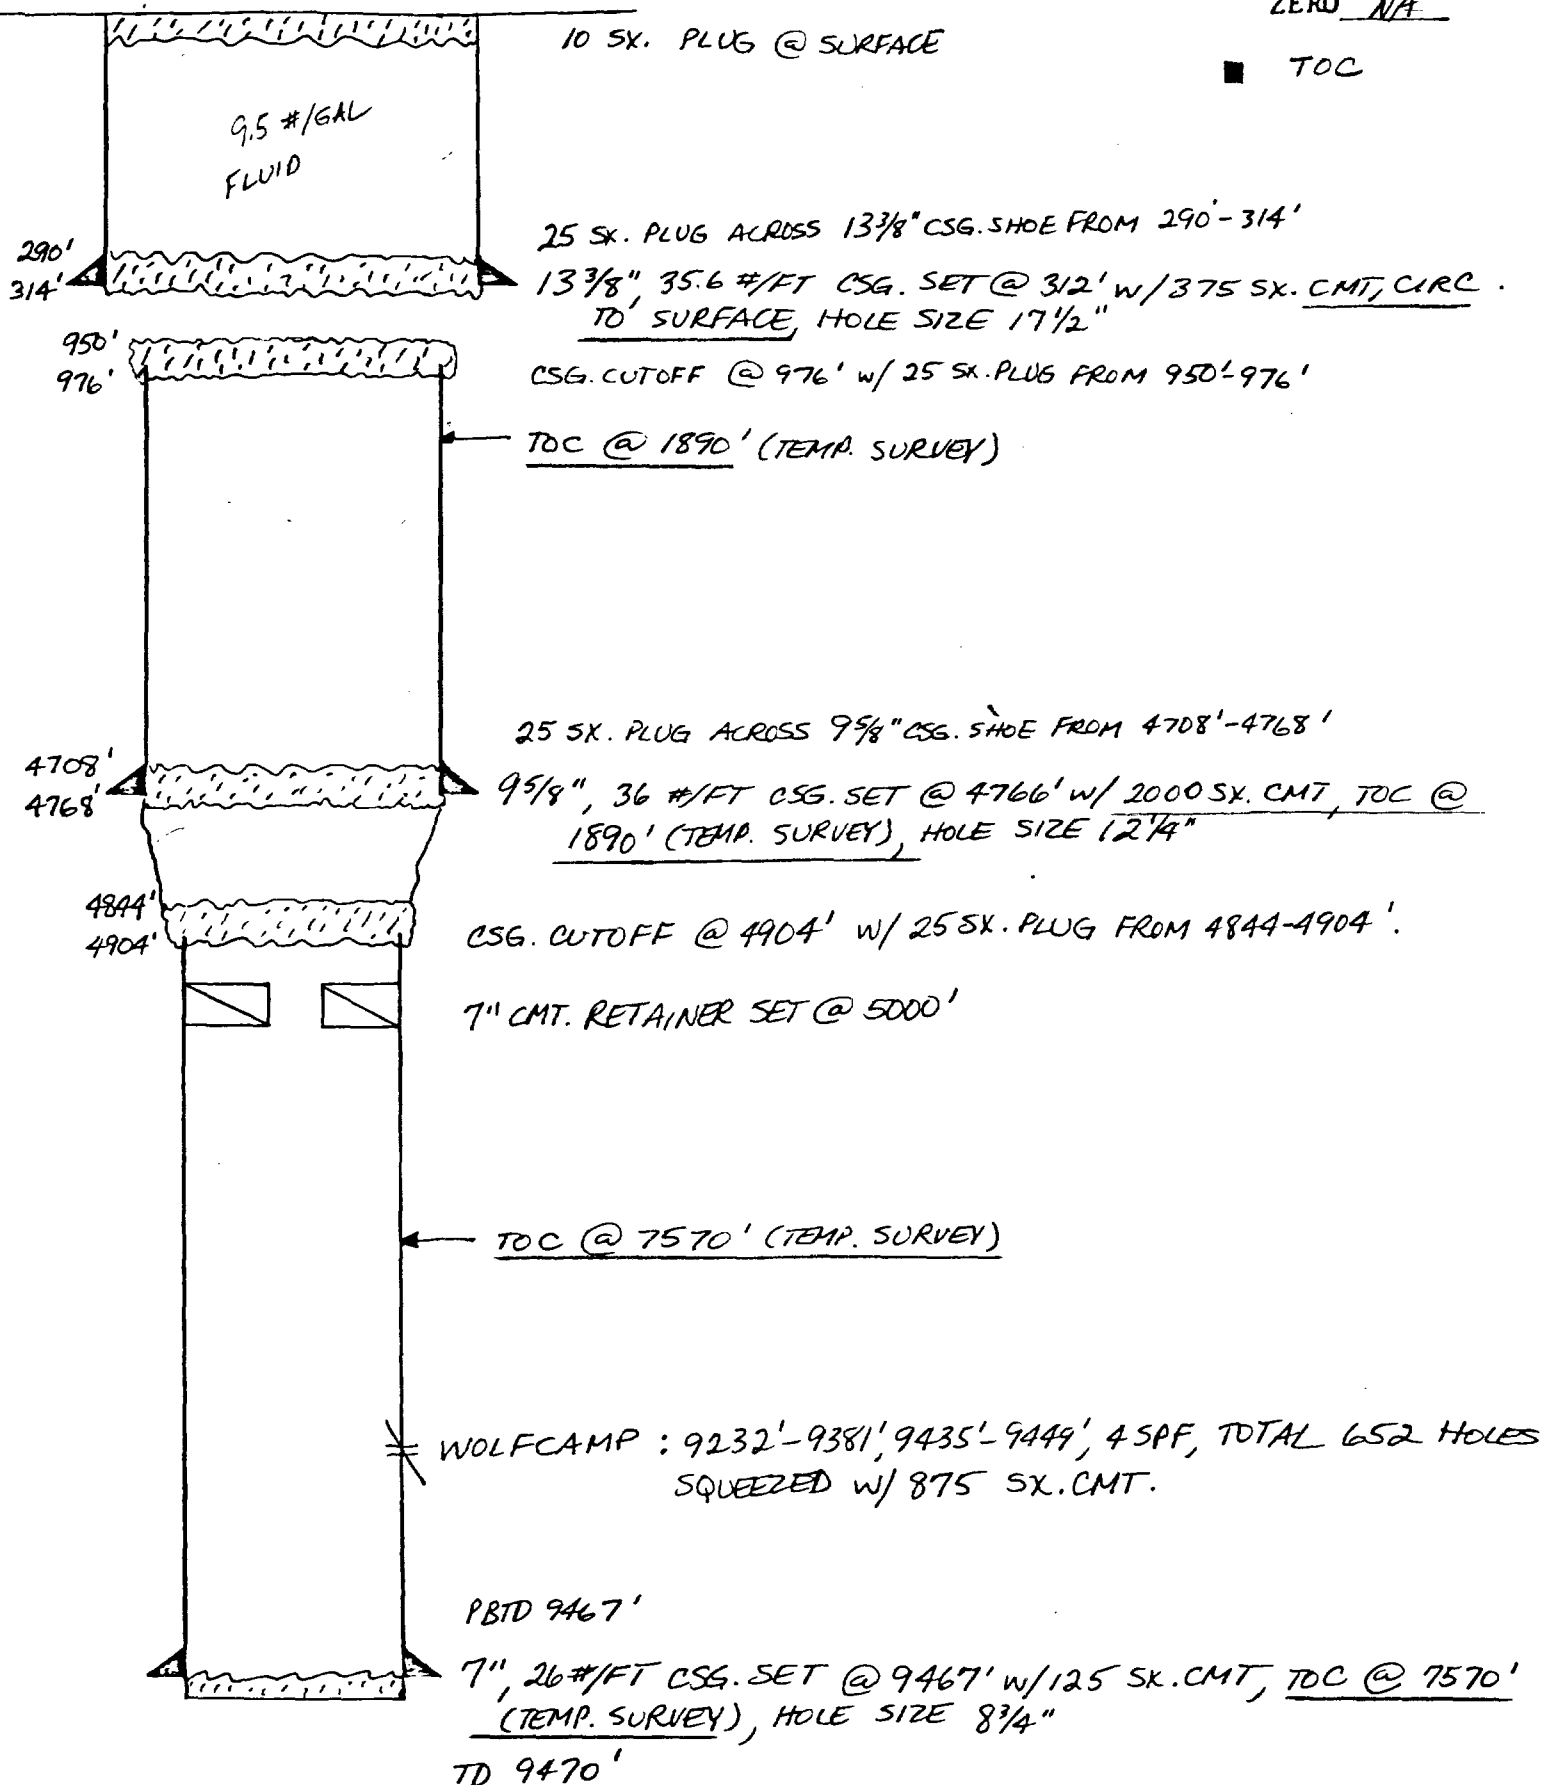 ZERO N/A
10 SX. PLUG @ SURFACE
■ TOC
9.5 #/GAL
FLUID
25 SX. PLUG ACROSS 13 3/8" CSG. SHOE FROM 290'-314'
290'
314'
13 3/8", 35.6 #/FT CSG. SET @ 312' W/375 SX. CMT, CIRC.
TO SURFACE, HOLE SIZE 17 1/2"
950'
976'
CSG. CUTOFF @ 976' W/ 25 SX. PLUG FROM 950'-976'
TOC @ 1890' (TEMP. SURVEY)
25 SX. PLUG ACROSS 9 5/8" CSG. SHOE FROM 4708'-4768'
4708'
4768'
9 5/8", 36 #/FT CSG. SET @ 4766' W/ 2000 SX. CMT, TOC @
1890' (TEMP. SURVEY), HOLE SIZE 12 1/4"
4844'
4904'
CSG. CUTOFF @ 4904' W/ 25 SX. PLUG FROM 4844-4904'.
7" CMT. RETAINER SET @ 5000'
TOC @ 7570' (TEMP. SURVEY)
WOLFCAMP : 9232'-9381', 9435'-9449', 4 SPF, TOTAL 652 HOLES
SQUEEZED W/ 875 SX. CMT.
PBTD 9467'
7", 26 #/FT CSG. SET @ 9467' W/125 SX. CMT, TOC @ 7570'
(TEMP. SURVEY), HOLE SIZE 8 3/4"
TD 9470'